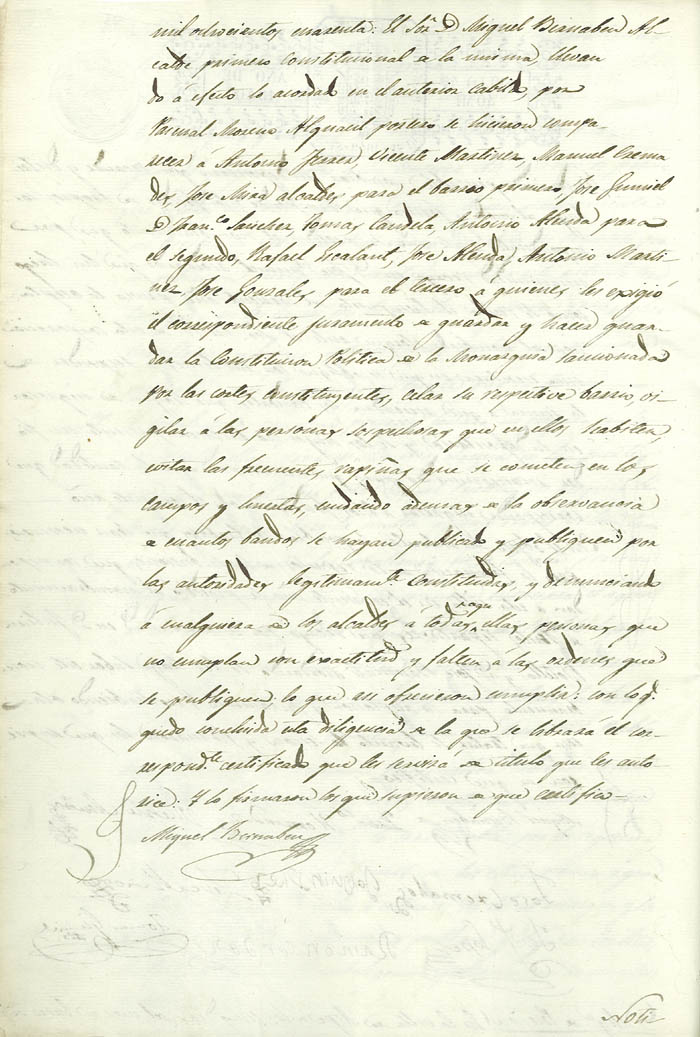 mil ochocientos cuarenta: El Sor. D. Miguel Bernabeu Al-
calde primero Constitucional de la misma, llevan
do á efecto lo acordado en el anterior cabildo, por
Pascual Moreno Alguacil portero se hicieron compa-
recer á Antonio Ferrer, Vicente Martinez, Manuel Crema
des, Jose Mira alcaldes para el barrio primero, Jose
D Franco. Sanchez, Tomas Candela, Antonio Alenda para
el segundo, Rafael Escalant, Jose Alenda, Antonio Marti-
nez, Jose Gonzalez para el tercero á quienes les exigió
el correspondiente juramento de guardar y hacer guar-
dar la Constitucion Politica de la Monarquia sancionada
por las cortes constituyentes, celar su respetive barrio, vi-
gilar á las personas sospechosas que en ellos habiten,
evitar las frecuentes rapiñas que se cometen en los
campos y huertas, cuidando ademas de la observancia
de cuantos bandos se hayan publicado y publiquen por
las autoridades legitimamte. constituidas, y denunciando
á cualquiera de los alcaldes á todas ellas personas que
no cumplan con exactitud y falten á las ordenes que
se publiquen; lo que asi ofrecieron cumplir: con lo q.
quedó concluida esta diligencia de la que se librará el cor-
respondte. certificado que les servirá de titulo que les auto
rice: Y lo firmaron los que supieron de que certifico-
Miguel Bernabeu
Noti